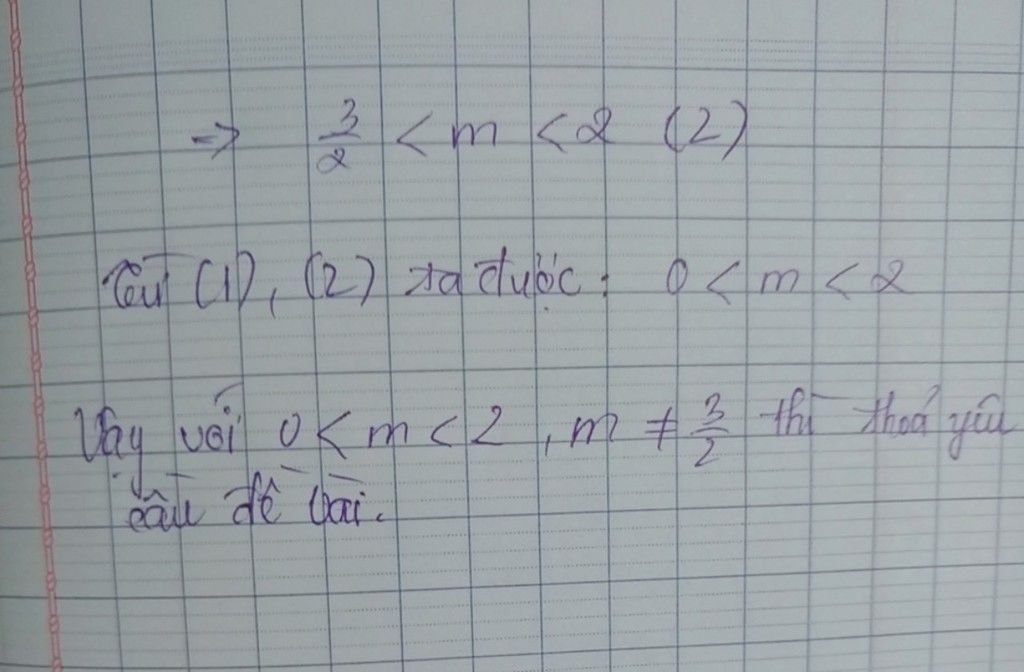 => 3/2 < m < 2 (2)
Từ (1), (2) ta được: 0 < m < 2
Vậy với 0 < m < 2, m ≠ 3/2 thì thoả yêu
cầu đề bài.